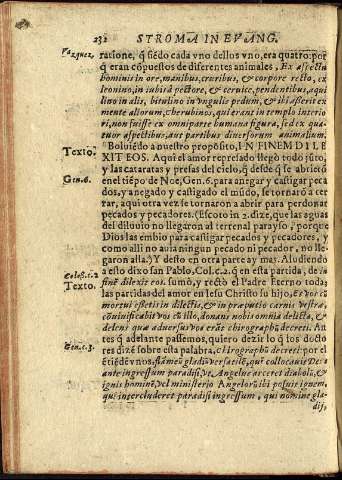 232 STROMA IN EVANG.
Vazquez.
ratione, q̃ siẽdo cada vno dellos vno, era quatro: por
q̃ eran cõpuestos de diferentes animales, Ex aspectu
hominis in ore, manibus, cruribus, & corpore recto, ex
leonino, in iuba & pectore, & ceruice, pendentibus, aqui
lino in alis, bitulino in vngulis pedum, & ibi asserit ex
mente aliorum, Cherubinos, qui erant in templo interio
ri, non fuisse ex omni parte humana figura, sed ex qua-
tuor aspectibus, aut partibus diuersorum animalium.
Texto.
Boluiẽdo a nuestro proposito, IN FINEM DILE
XIT EOS. Aqui el amor represado llegò todo jũto,
y las cataratas y presas del cielo, q̃ desde q̃ se abrierõ
Gen. 6.
en el tiẽpo de Noe, Gen. 6. para anegar y castigar peca
dos, y anegado y castigado el mũdo, se tornarõ a cer
rar, aqui otra vez se tornaron a abrir para perdonar
pecados y pecadores. (Escoto in 2. dize, que las aguas
del diluuio no llegaron al terrenal parayso, porque
Dios las embio para castigar pecados y pecadores, y
como alli no auia ningun pecado ni pecador, no lle-
garon alla.) Y desto en otra parte ay mas. Aludiendo
Colos. c. 2
a esto dixo san Pablo, Col. c. 2. q̃ en esta partida, de in
Texto.
finẽ dilexit eos. sumò, y rectò el Padre Eterno todas
las partidas del amor en Iesu Christo su hijo, Et vos cũ
mortui essetis in delictis, & in præputio carnis vestræ,
conuiuificabit vos cũ illo, donans nobis omnia delicta, &
delens quæ aduersus vos erãt chirographũ decreti. An
tes q̃ adelante passemos, quiero dezir lo q̃ los docto
Gen. c. 3.
res dizẽ sobre esta palabra, chirographũ decreti: por el
ẽtiẽdẽ vnos, flãmeũ gladiũ versatilẽ, quẽ collocauit Deus
ante ingressum paradisi, vt Angelus arceret diabolũ, &
ignis hominẽ, vel ministerio Angelorũ ibi posuit ignem,
qui intercluderet paradisi ingressum, qui nomine gla-
dij,